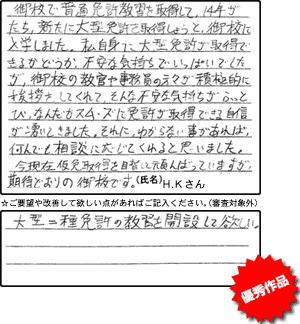 御校で普通免許教習を取得して、14年が
たち、新たに大型免許を取得しようと、御校に
入学しました。私自身に大型免許が取得で
きるかどうか、不安な気持ちでいっぱいでした
が、御校の教官や事務員のみなさまが積極的に
挨拶をしてくれて、そんな不安な気持ちがふっと
び、なんだかスムーズに免許が取得できる自信
が湧いてきました。それに、わからない事があれば、
何んでも相談に応じてくれると思いました。
今現在仮免取得を目指して頑んばっていますが、
期待どおりの御校です。(氏名)H.Kさん
☆ご要望や改善して欲しい点があればご記入ください。(審査対象外)
大型二種免許の教習を開設して欲しい。
優秀作品